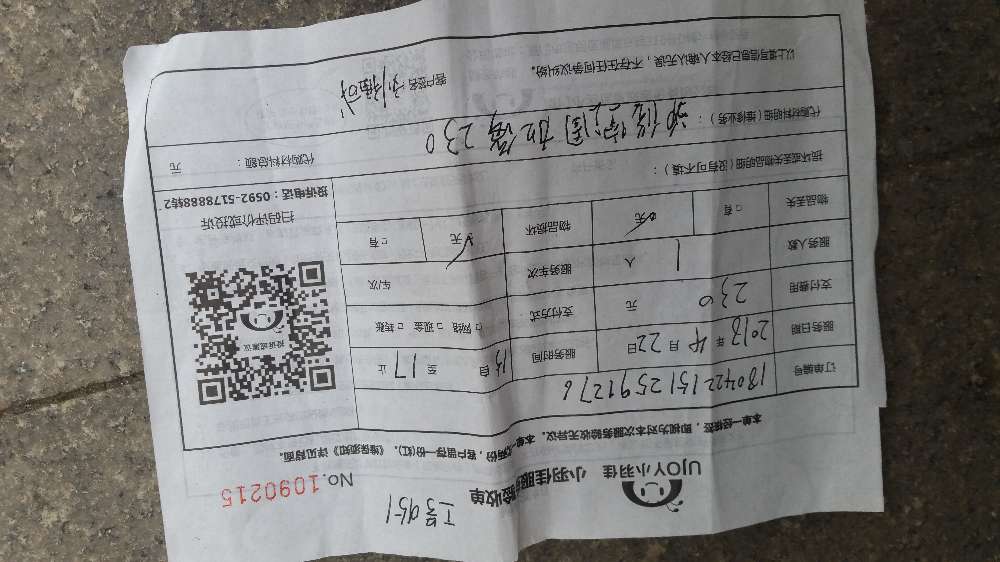 UJOY小羽佳 小羽佳服 验收单
工号951
No.1090215
本单一经接签，即视为对本次服务验收无异议。本单一式两份，客户留存一份(红)。《维保须知》详见背面。
订单编号 180422151259127 6
服务日期 2018年4月22日 服务时间 15自 至17止
支付费用 230 元 支付方式 □网络 □现金 □转账
服务人数 1 人 服务车次 车次
物品丢失 □有 ☑无 物品损坏 ☑无 □有
投诉或建议
扫码评价或投诉
投诉电话：0592-5178888转2
损坏或丢失物品明细（没有可不填）：
代购材料明细（维修业务）：
230
代购材料总额： 元
以上填写信息已经本人确认无误，不存在任何争议纠纷。
客户签名：